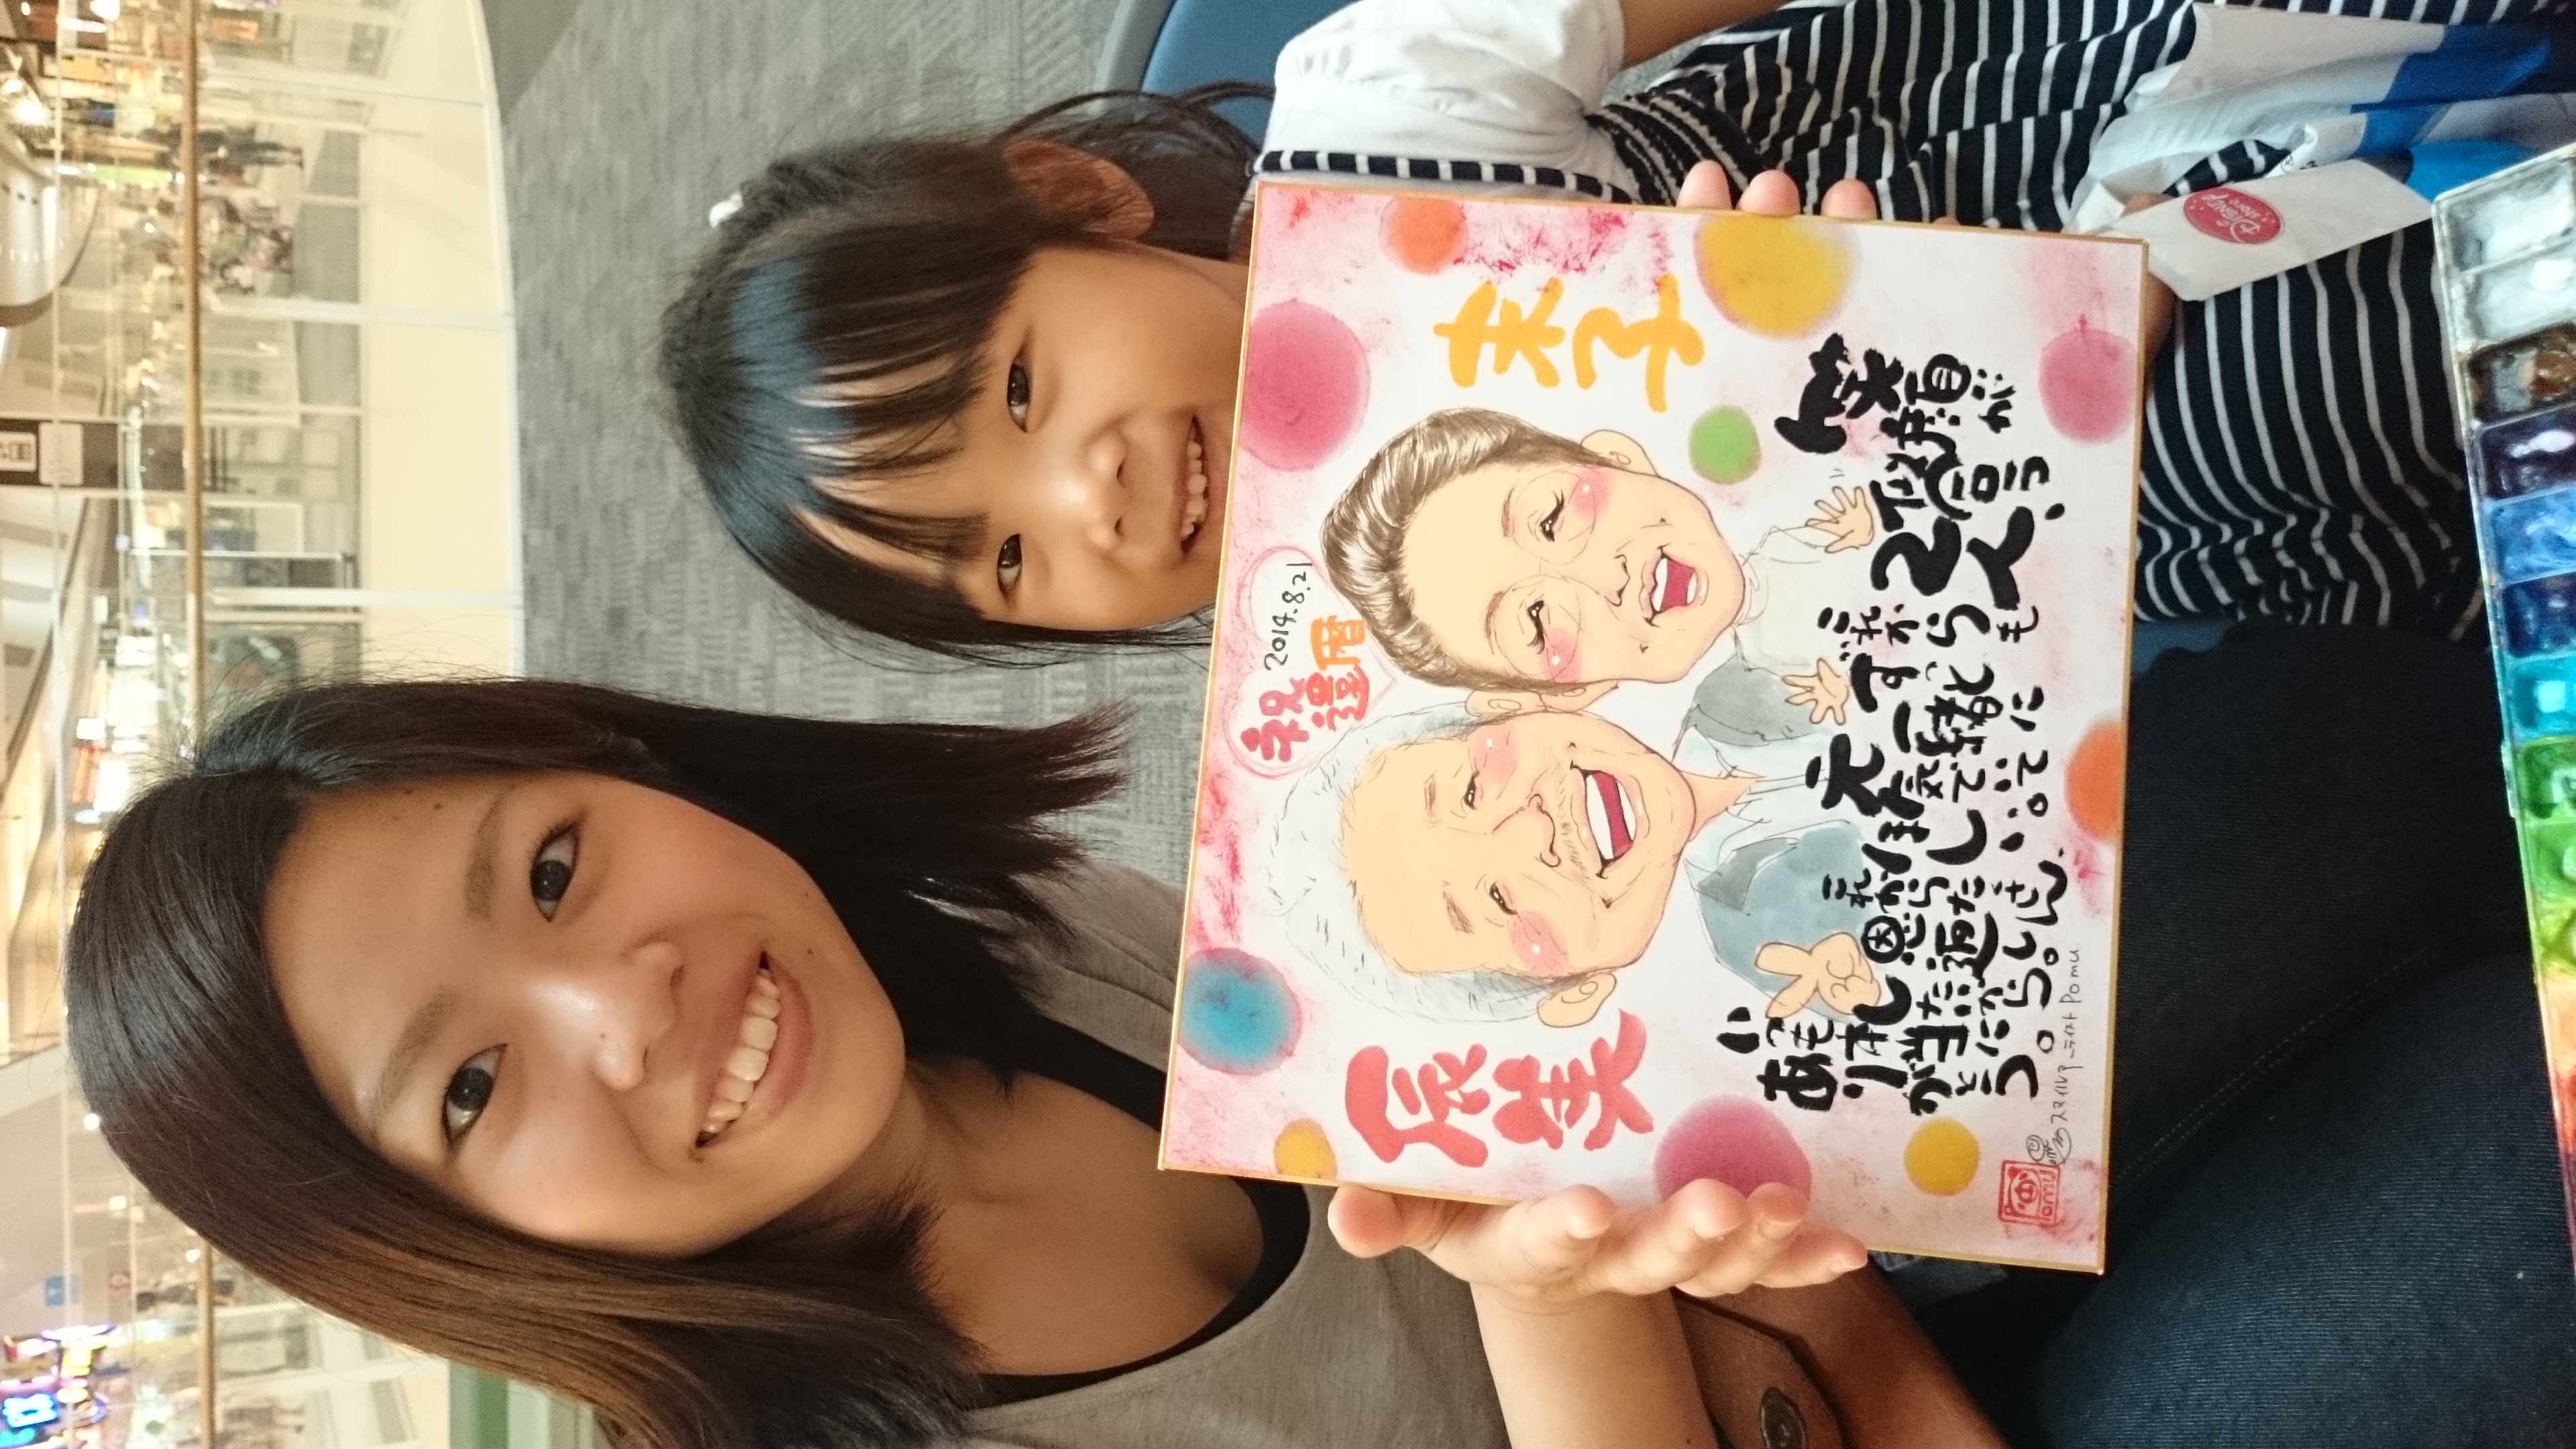 祝 2014.8.21
還暦
辰美
末子
笑顔が
似合う
2人、
これからも
ずっと
一緒に
元気でいて
ほしい。
これからたくさん
恩返し
したいから。
いつも本当に
ありがとう。
Pomu
スマイルアーティスト Pomu
Disney
store